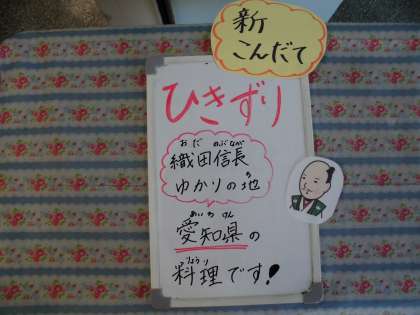 新
こんだて
ひきずり
おだ のぶなが
織田信長
ゆかりの地
あいちけん
愛知県の
りょうり
料理です!